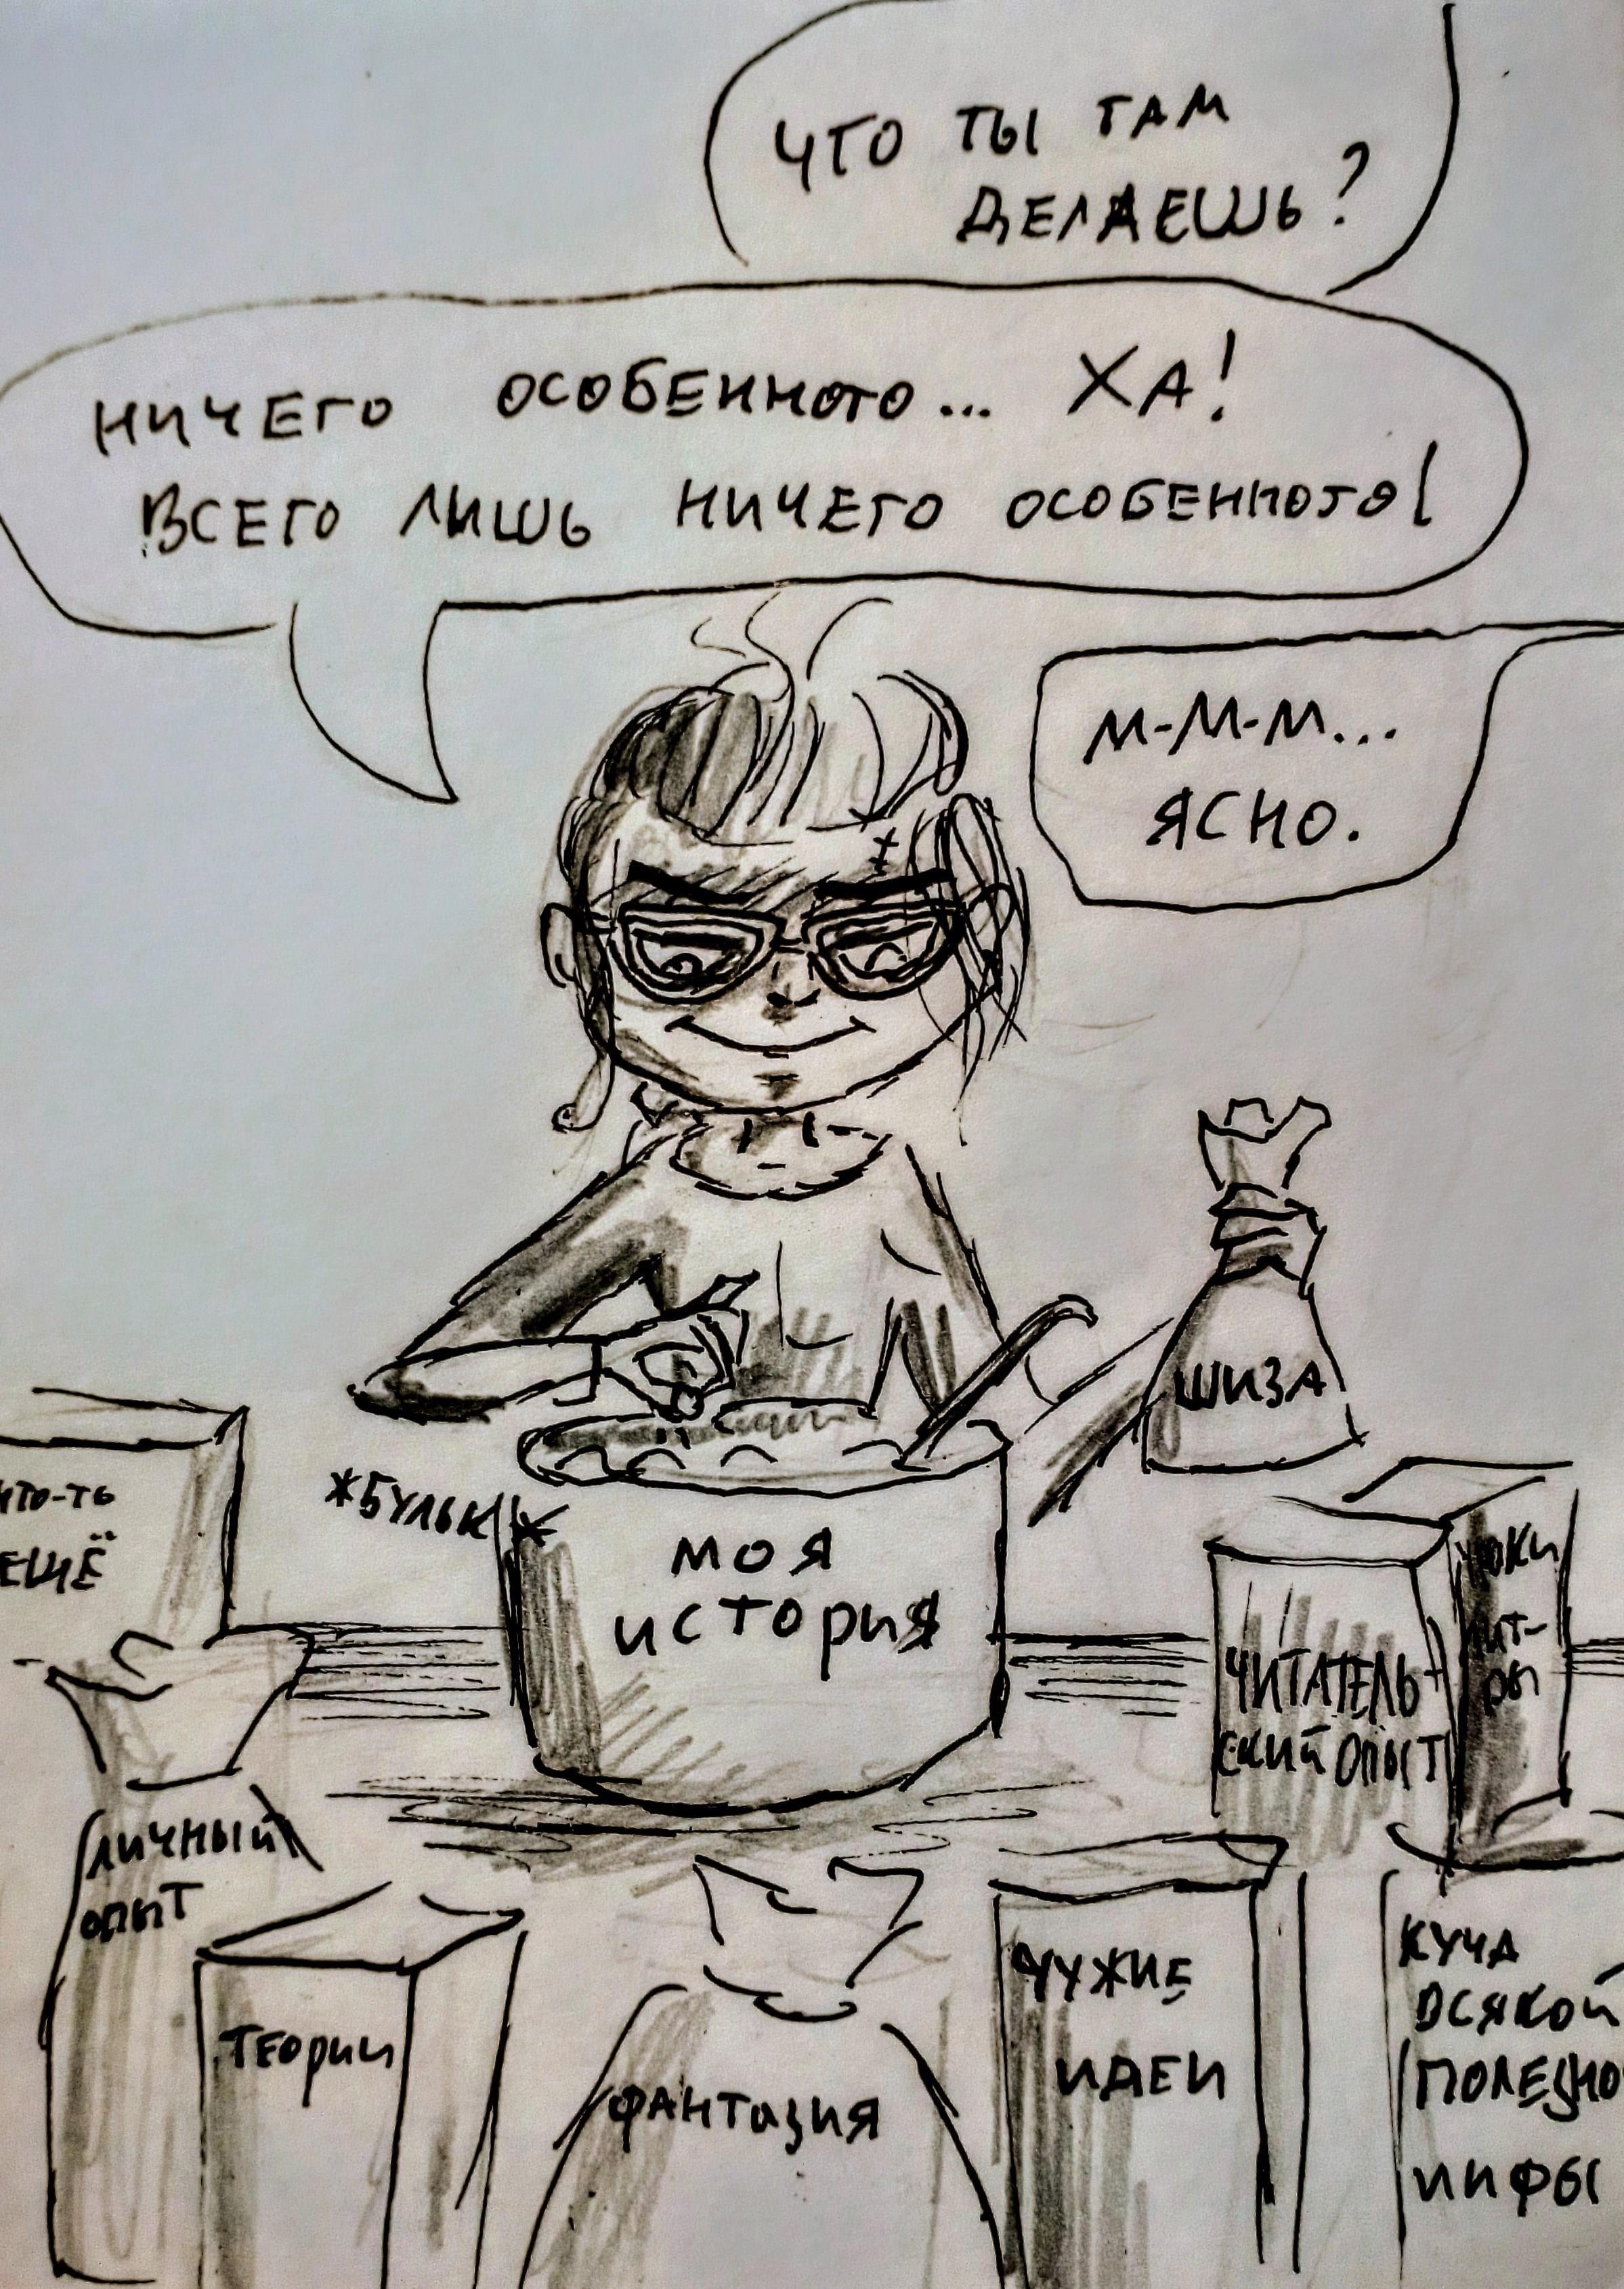 ЧТО ТЫ ТАМ
ДЕЛАЕШЬ?
НИЧЕГО ОСОБЕННОГО... ХА!
ВСЕГО ЛИШЬ НИЧЕГО ОСОБЕННОГО!
М-М-М...
ЯСНО.
ШИЗА
ЧТО-ТЬ
ЕЩЁ
*БУЛЬК*
МОЯ
ИСТОРИЯ
ЧИТАТЕЛЬ-
СКИЙ ОПЫТ
ЛИЧНЫЙ
ОПЫТ
ТЕОРИИ
ФАНТАЗИЯ
ЧУЖИЕ
ИДЕИ
КУЧА
ВСЯКОЙ
ПОЛЕЗНО
ИНФЫ